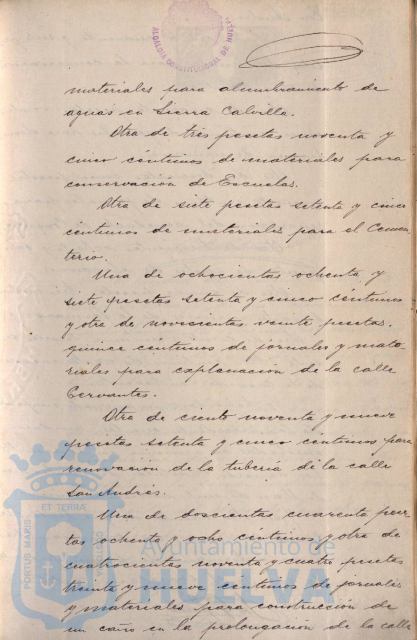 ALCALDIA CONSTITUCIONAL DE HUELVA
materiales para alumbramiento de
aguas en Sierra Calvilla.
Otra de tres pesetas noventa y
cinco céntimos de materiales para
conservación de Escuelas.
Otra de siete pesetas setenta y cinco
céntimos de materiales para el Cemen
terio.
Una de ochocientas ochenta y
siete pesetas setenta y cinco céntimos
y otra de novecientas veinte pesetas
quince céntimos de jornales y mate
riales para explanación de la calle
Cervantes.
Otra de ciento noventa y nueve
pesetas setenta y cinco céntimos para
renovación de la tubería de la calle
San Andrés.
Una de doscientas cuarenta pese
tas ochenta y ocho céntimos y otra de
cuatrocientas noventa y cuatro pesetas
treinta y nueve céntimos de jornales
y materiales para construcción de
un caño en la prolongación de la calle
PORTUS MARIS ET TERRAE
Ayuntamiento de
HUELVA